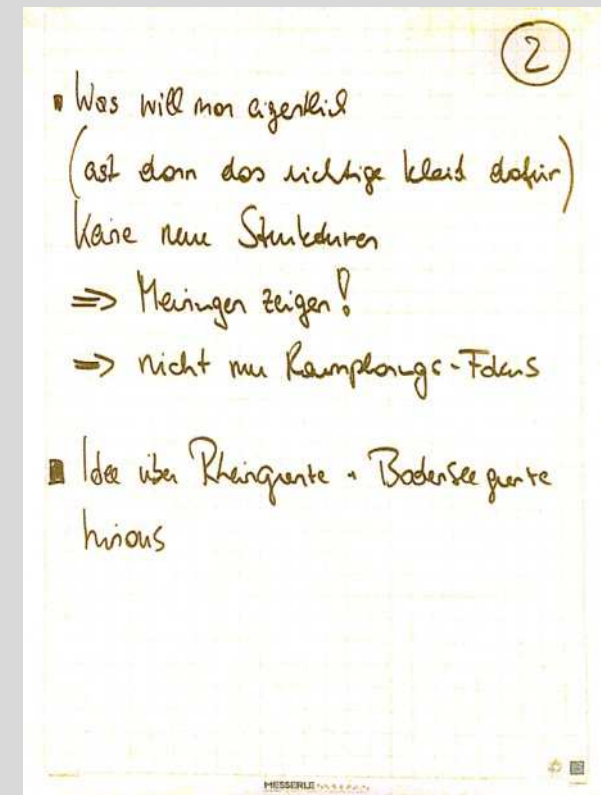 2
▪ Was will man eigentlich
(erst dann das richtige Kleid dafür)
Keine neue Strukturen
=> Meinungen zeigen!
=> nicht nur Raumplanungs-Fokus
▪ Idee über Rheingrenze + Bodenseegrenze
hinaus
MESSERLE